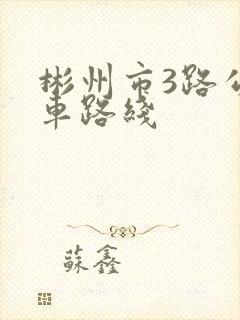 彬州市3路公
車路綫
蘇鑫